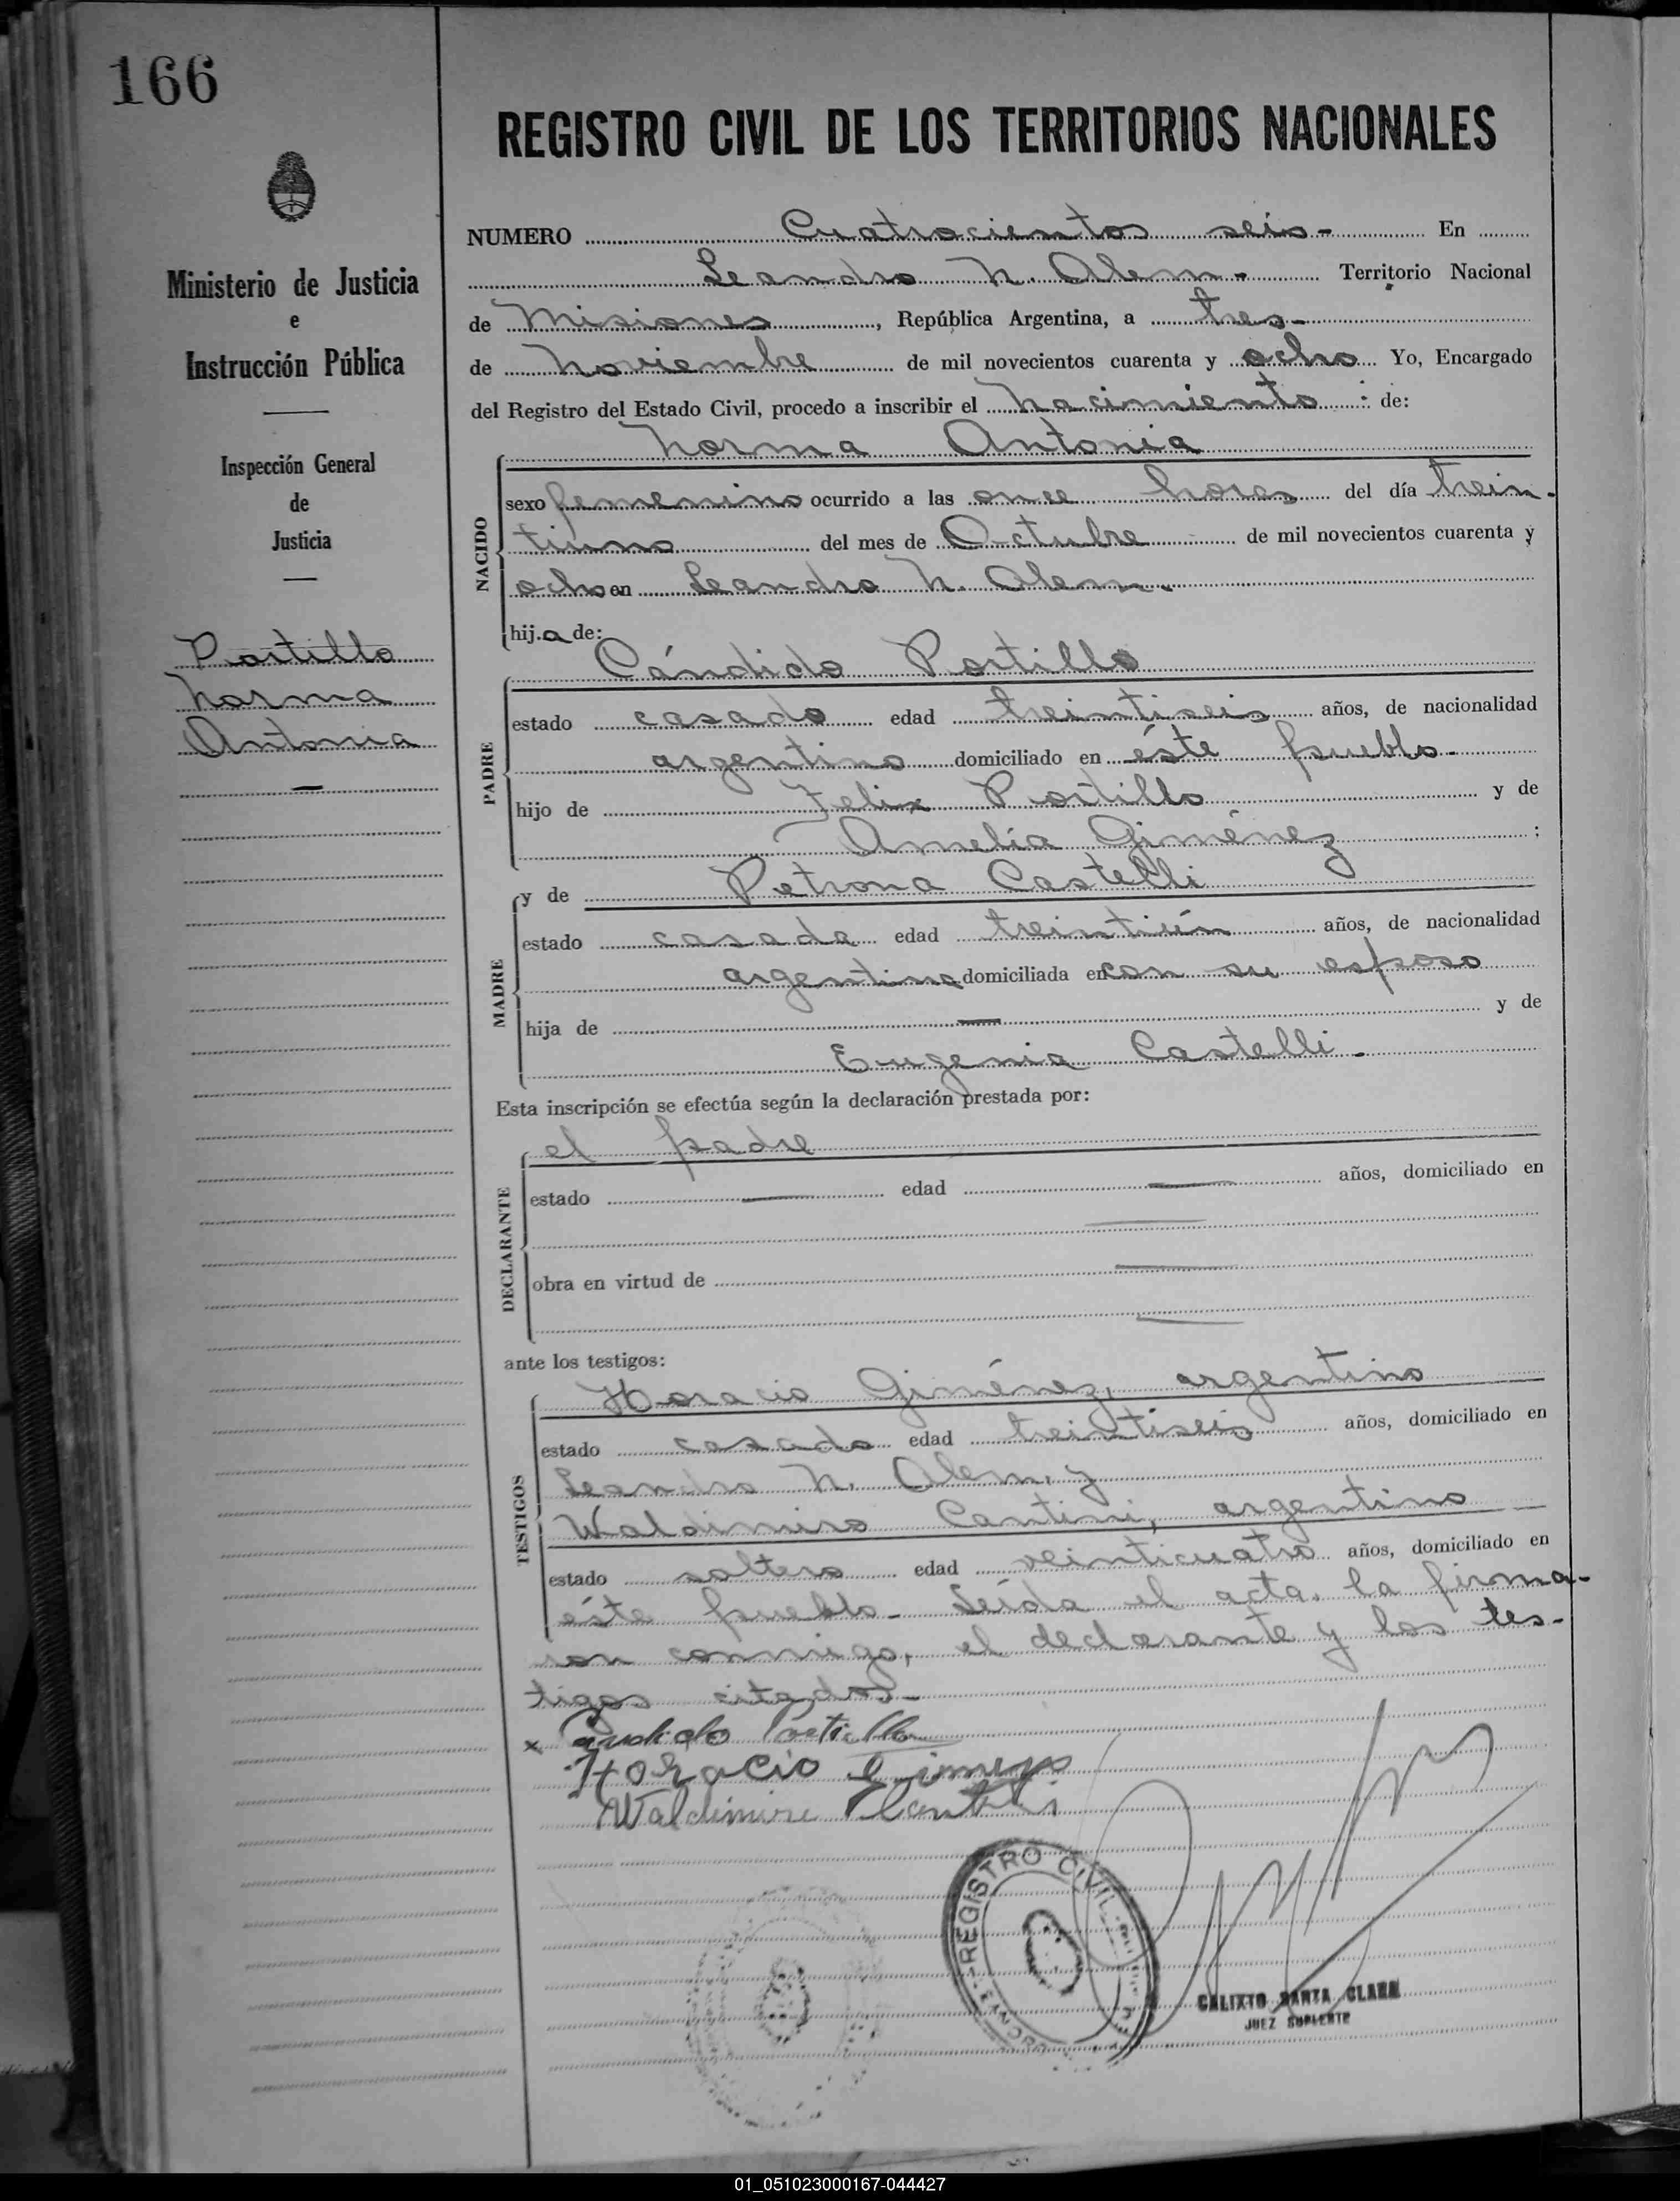 166
Ministerio de Justicia
e
Instrucción Pública
Inspección General
de
Justicia
Portillo
Norma
Antonia
REGISTRO CIVIL DE LOS TERRITORIOS NACIONALES
NUMERO Cuatrocientos seis - En
Leandro N. Alem - Territorio Nacional
de Misiones, República Argentina, a tres -
de Noviembre de mil novecientos cuarenta y ocho Yo, Encargado
del Registro del Estado Civil, procedo a inscribir el nacimiento : de:
Norma Antonia
NACIDO
sexo femenino ocurrido a las once horas del día trein-
tiuno del mes de Octubre de mil novecientos cuarenta y
ocho en Leandro N. Alem.
hij.a de:
Cándido Portillo
PADRE
estado casado edad treintiseis años, de nacionalidad
argentino domiciliado en éste pueblo -
hijo de Felix Portillo y de
Amelia Giménez ;
MADRE
y de Petrona Castelli
estado casada edad treintiún años, de nacionalidad
argentina domiciliada en con su esposo
hija de — y de
Eugenia Castelli -
Esta inscripción se efectúa según la declaración prestada por:
DECLARANTE
el padre
estado — edad — años, domiciliado en
obra en virtud de —
ante los testigos:
TESTIGOS
Horacio Giménez, argentino
estado casado edad treintiseis años, domiciliado en
Leandro N. Alem, y
Waldimiro Cantini, argentino
estado soltero edad veinticuatro años, domiciliado en
éste pueblo - Leída el acta, la firma-
ron conmigo, el declarante y los tes-
tigos citados -
x Candido Portillo
Horacio Gimenez
Waldimiro
REGISTRO CIVIL
CALIXTO SANTA CLARA
JUEZ SUPLENTE
01_051023000167-044427